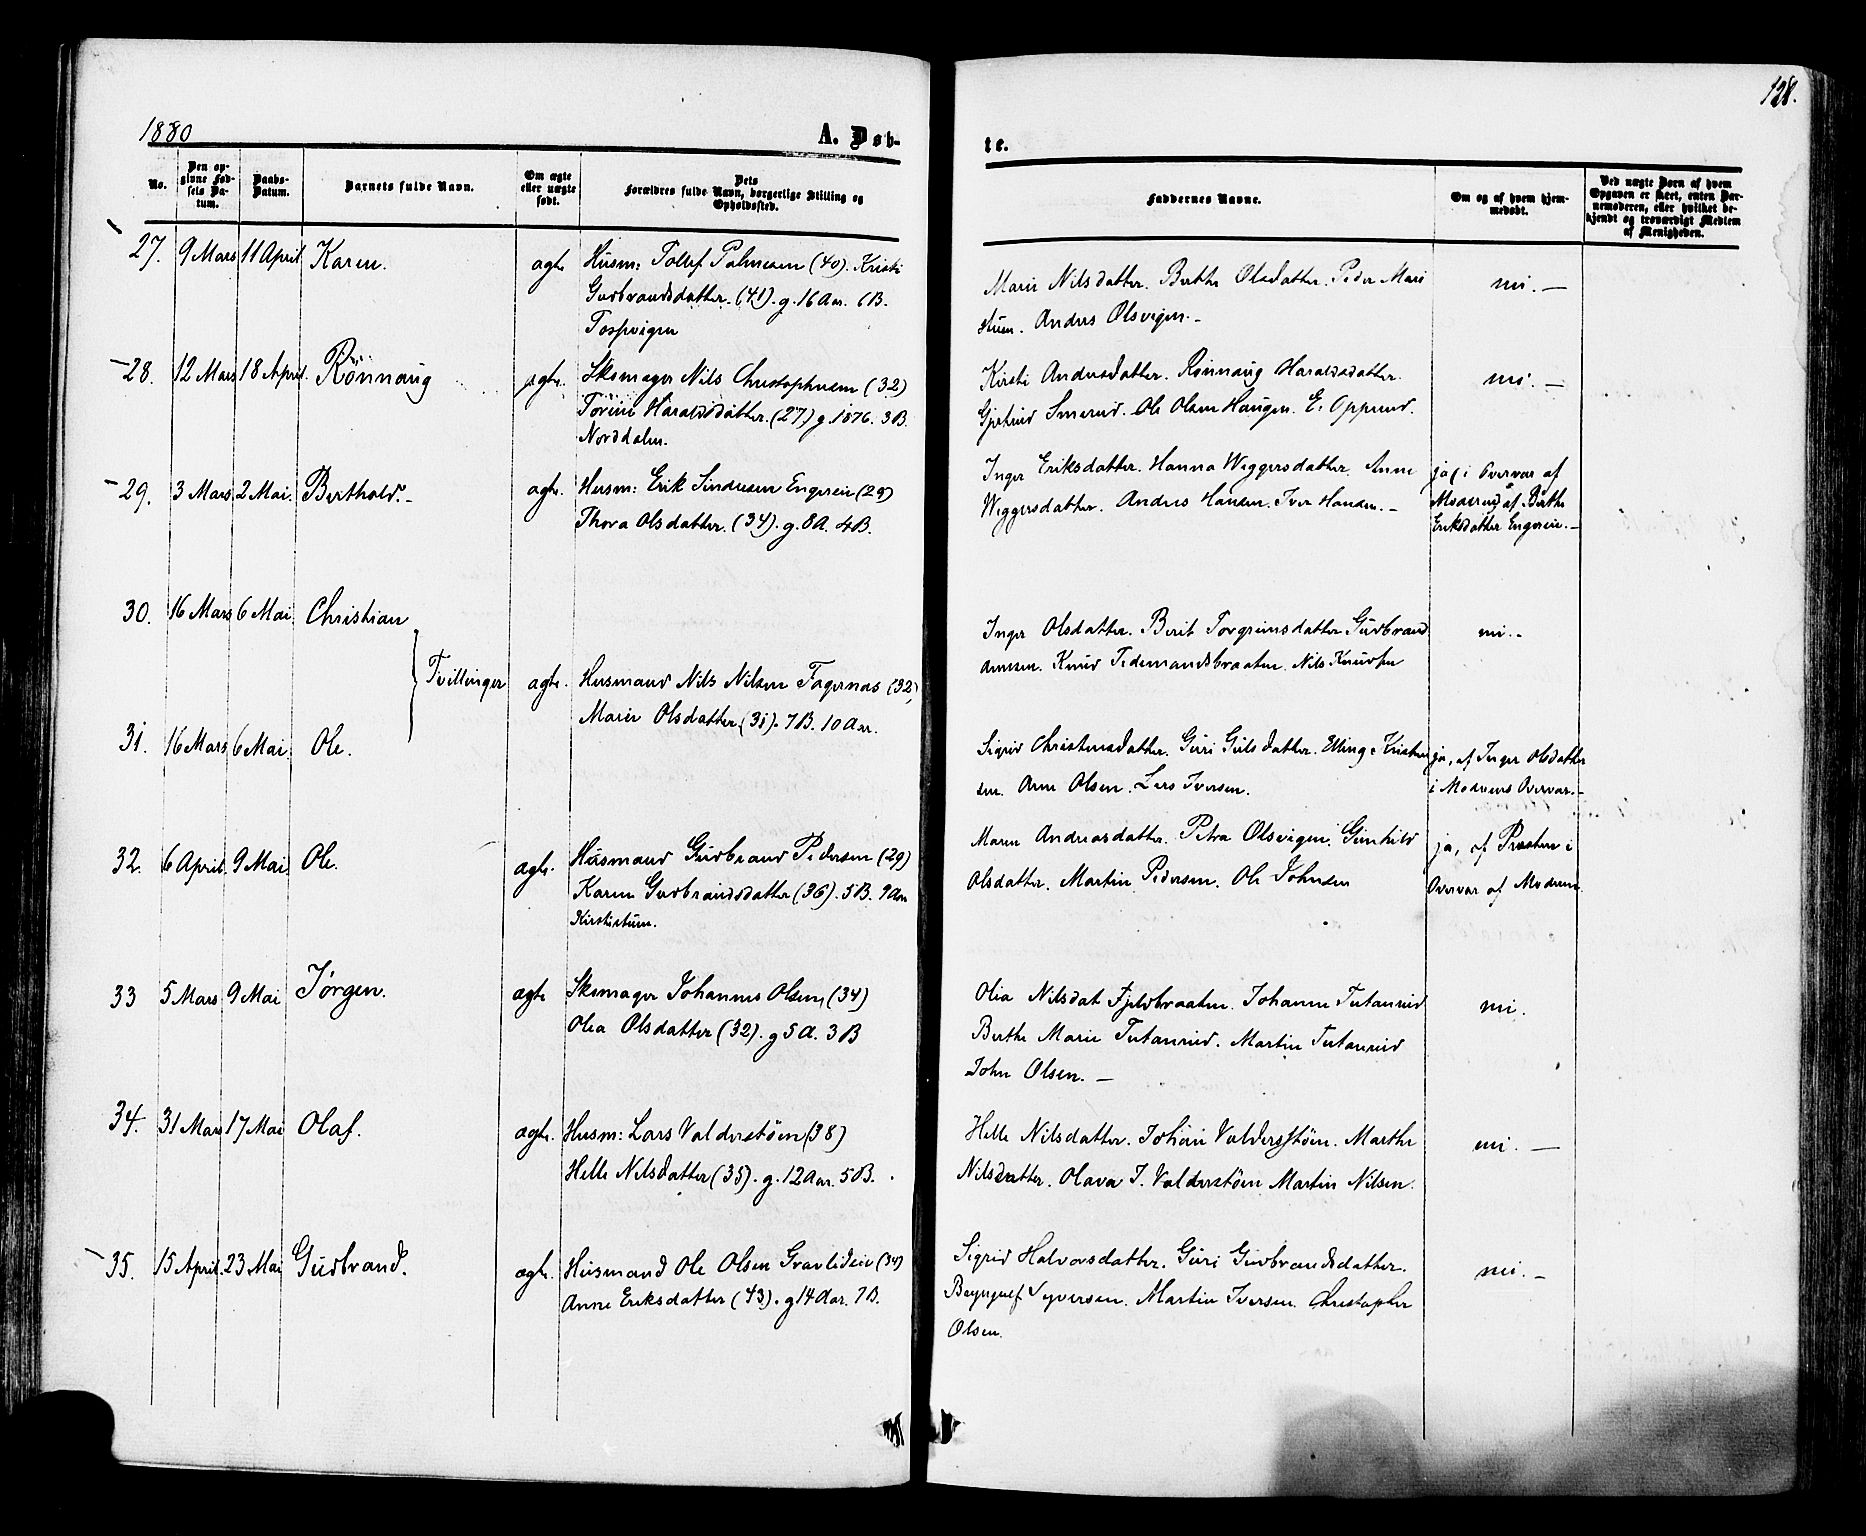 1880
A. Døb-
te.
128.
No.
Den opgivne Fødsels Datum.
Daabs-Datum.
Barnets fulde Navn.
Om ægte eller uægte født.
Dets Forældres fulde Navn, borgerlige Stilling og Opholdssted.
Faddernes Navne.
Om og af hvem hjemmedøbt.
Ved uægte Børn af hvem Opgaven er skeet, enten Barnemoderen, eller hvilket bekjendt og troværdigt Medlem af Menigheden.
27. 9 Mars 11 April Karen. ægte Husm: Tollef Palmesen (40). Kristi
Gudbrandsdatter. (41). g. 16 Aar. 6 B.
Marie Nilsdatter. Berthe Olsdatter. Peder Mari
stuen. Andres Olsvigen. –
nei. –
28. 12 Mars 18 April. Rönnaug ægte. Skomager Nils Christophersen (32)
Haraldsdatter. (27) g. 1876. 3 B.
Norddalen.
Kirsti Andersdatter. Rönnaug Haraldsdatter.
Smerud. Ole Olsen Haugen. E. Opperud.
nei. –
29. 3 Mars 2 Mai. Berthold. – ægte. Husm: Erik Engereie (29)
Thora Olsdatter. (34). g. 8 A. 4 B.
Inger Eriksdatter. Hanna Wiggersdatter. Anne
Wiggersdatter. Andres Hansen. Iver Hansen. –
ja, i Overvær af
Moderen, af Berthe
Eriksdatter Engereie. –
30. 16 Mars 6 Mai Christian
Inger Olsdatter. Berit Torgrimsdatter. Gudbrand
Arnesen. Knud Tidemandsbraaten. Nils Knudsen
nei. –
Tvillinger ægte. Husmand Nils Nilsen Fagernæs (32)
Marie Olsdatter (31). 7 B. 10 Aar.
31. 16 Mars 6 Mai. Ole.
Sigrid Christensdatter. Guri Gulsdatter. Elling Kristen
sen. Arne Olsen. Lars Iversen.
ja, af Inger Olsdatter
i Moderens Overvær. –
32. 6 April. 9 Mai. Ole. ægte. Husmand Gudbrand Pedersen (29)
Karen Gudbrandsdatter (36). 5 B. 9 Aar
Kirstistuen.
Maren Andreasdatter. Petra Olsvigen. Gunhild
Olsdatter. Martin Pedersen. Ole Johnsen
ja, af Præsten i
Overvær af Moderen.
33 5 Mars 9 Mai Jörgen. ægte Skomager Johannes Olsen, (34)
Olea Olsdatter (32). g 5 A. 3 B
Olia Nilsdat Fjeldbraaten. Johanne Tutanrud
Berthe Marie Tutanrud. Martin Tutanrud
John Olsen. –
nei.
34. 31 Mars 17 Mai Olaf. ægte. Husm: Lars Valderstöen (38)
Helle Nilsdatter (35). g. 12 Aar. 5 B.
Helle Nilsdatter. Johan Valderstöen. Marthe
Nilsdatter. Olava J. Valderstöen Martin Nilsen.
nei. –
35. 15 April. 23 Mai Gudbrand. ægte. Husmand Ole Olsen Gravlideie (34)
Anne Eriksdatter (43). g 14 Aar. 7 B.
Sigrid Halvorsdatter. Guri Gudbrandsdatter.
Syversen. Martin Iversen. Christopher
Olsen.
nei. –